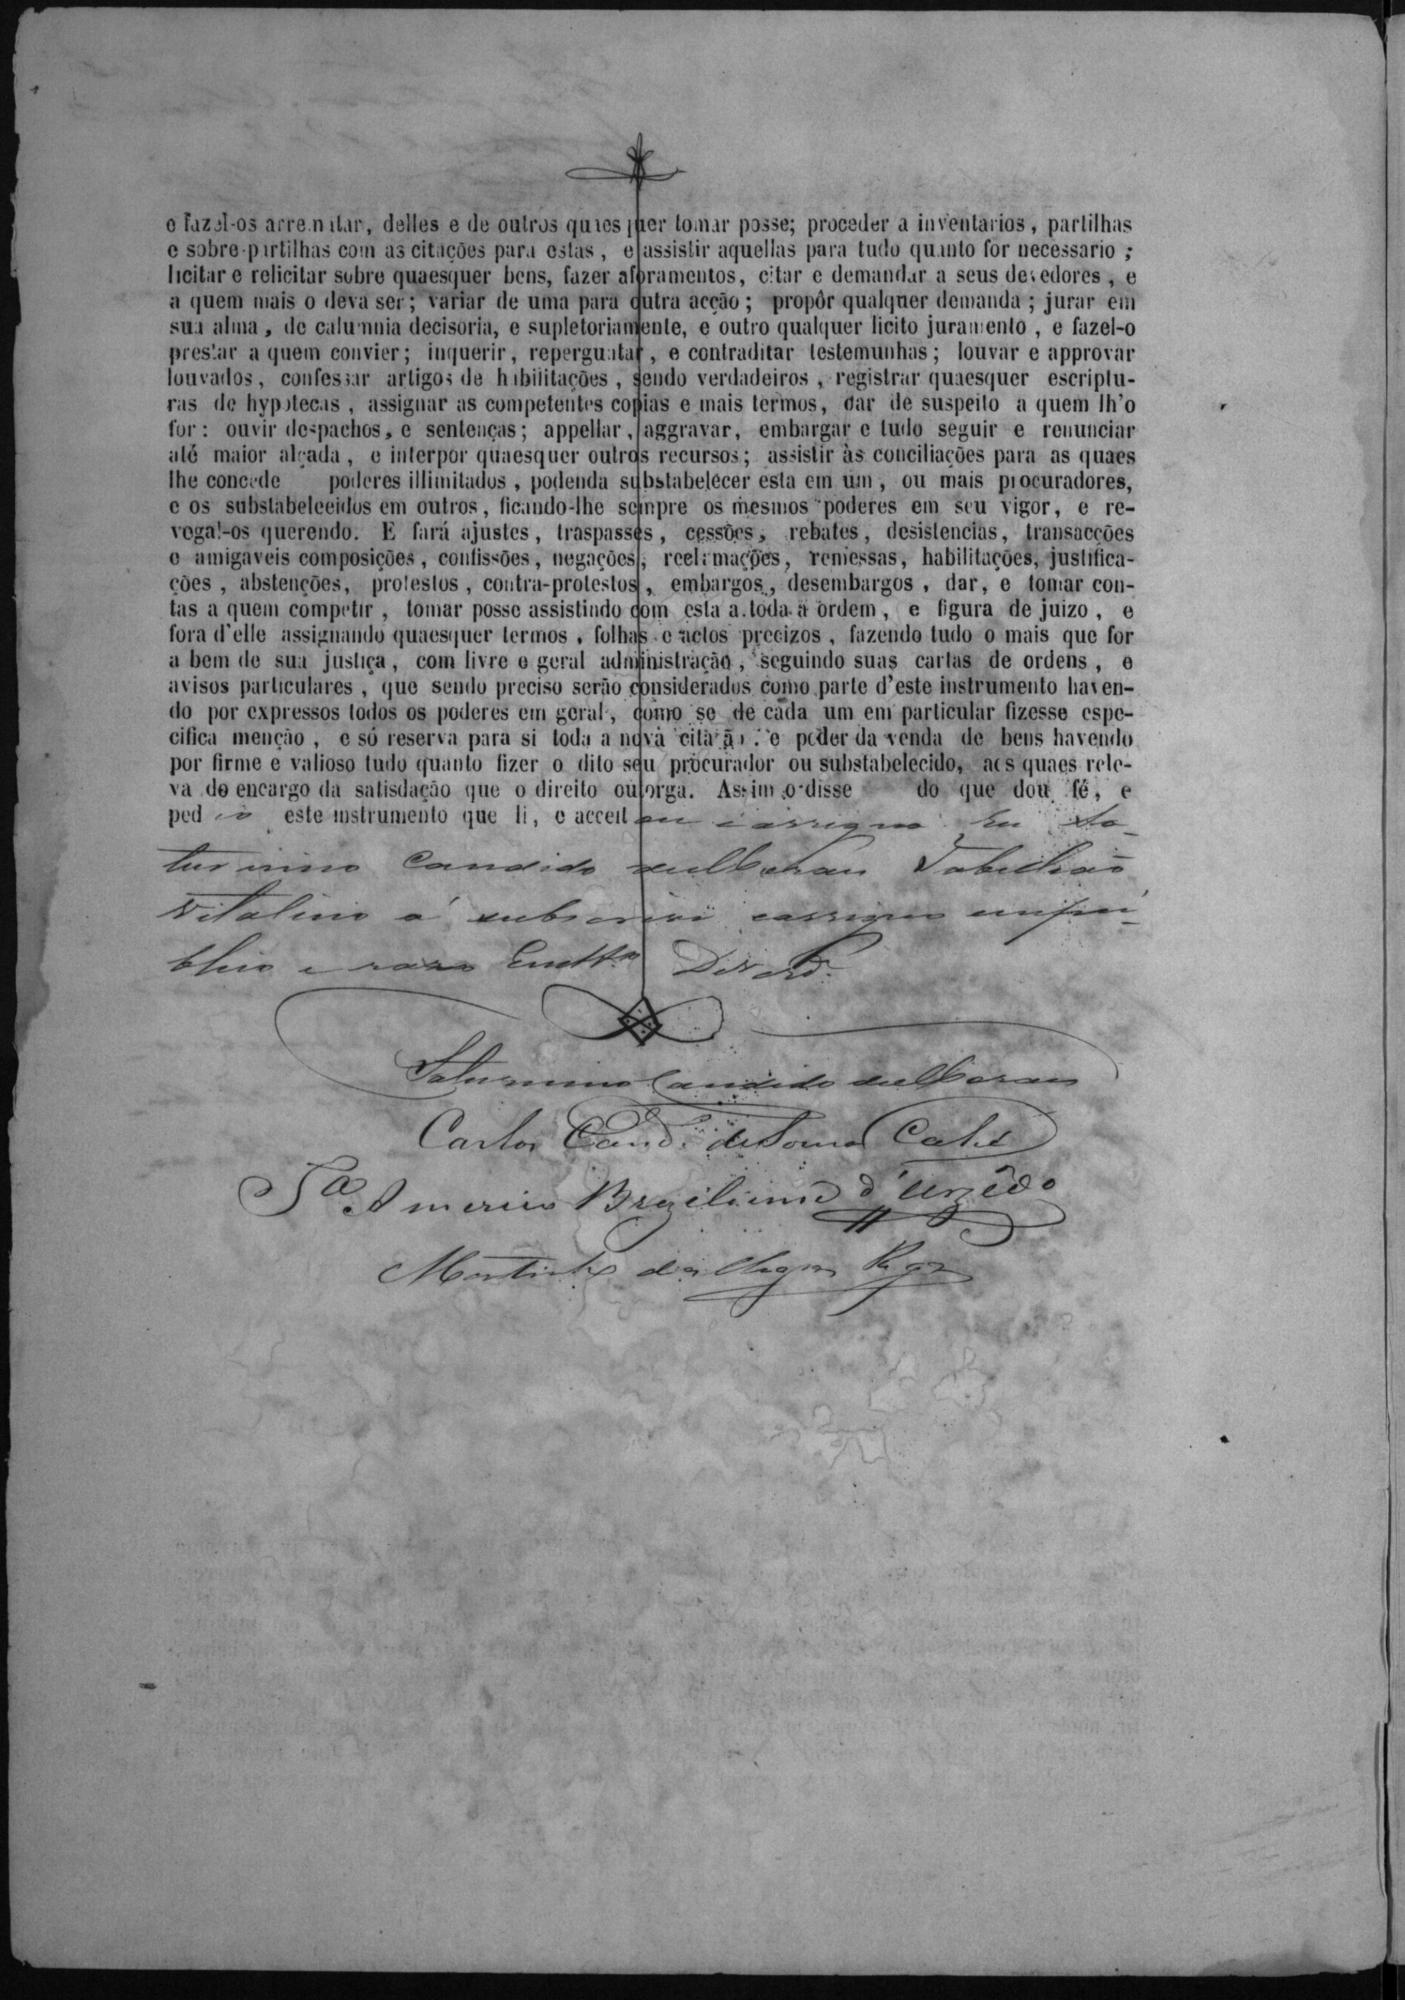 e fazel-os arrematar, delles e de outros quaesquer tomar posse; proceder a inventarios, partilhas
e sobre-partilhas com as citações para estas, e assistir aquellas para tudo quanto for necessario;
licitar e relicitar sobre quaesquer bens, fazer aforamentos, citar e demandar a seus devedores, e
a quem mais o deva ser; variar de uma para outra acção; propôr qualquer demanda; jurar em
sua alma, de calumnia decisoria, e supletoriamente, e outro qualquer licito juramento, e fazel-o
prestar a quem convier; inquerir, reperguntar, e contraditar testemunhas; louvar e approvar
louvados, confessar artigos de habilitações, sendo verdadeiros, registrar quaesquer escriptu-
ras de hypotecas, assignar as competentes copias e mais termos, dar de suspeito a quem lh'o
for: ouvir despachos, e sentenças; appellar, aggravar, embargar e tudo seguir e renunciar
até maior alçada, e interpor quaesquer outros recursos; assistir às conciliações para as quaes
lhe concede poderes illimitados, podenda substabelecer esta em um, ou mais procuradores,
e os substabeleeidos em outros, ficando-lhe sempre os mesmos poderes em seu vigor, e re-
vogal-os querendo. E fará ajustes, traspasses, cessões, rebates, desistencias, transacções
e amigaveis composições, confissões, negações, reclamações, remessas, habilitações, justifica-
ções, abstenções, protestos, contra-protestos, embargos, desembargos, dar, e tomar con-
tas a quem competir, tomar posse assistindo com esta a toda a ordem, e figura de juizo, e
fora d'elle assignando quaesquer termos, folhas e actos precizos, fazendo tudo o mais que for
a bem de sua justiça, com livre e geral administração, seguindo suas cartas de ordens, e
avisos particulares, que sendo preciso serão considerados como parte d'este instrumento haven-
do por expressos todos os poderes em geral, como se de cada um em particular fizesse espe-
cifica menção, e só reserva para si toda a nova citação: e poder da venda de bens havendo
por firme e valioso tudo quanto fizer o dito seu procurador ou substabelecido, aos quaes rele-
va do encargo da satisdação que o direito outorga. Assim o disse do que dou fé, e
pedio este instrumento que li, e acceitou e assigna. Eu Sa-
turnino Candido de Moraes Tabellião
Vitalicio o subscrevi e assigno em pu-
blico e razo
Saturnino Candido de Moraes
Carlos Cand. de Souza
Ta. Americo Braziliense d'Uzêdo